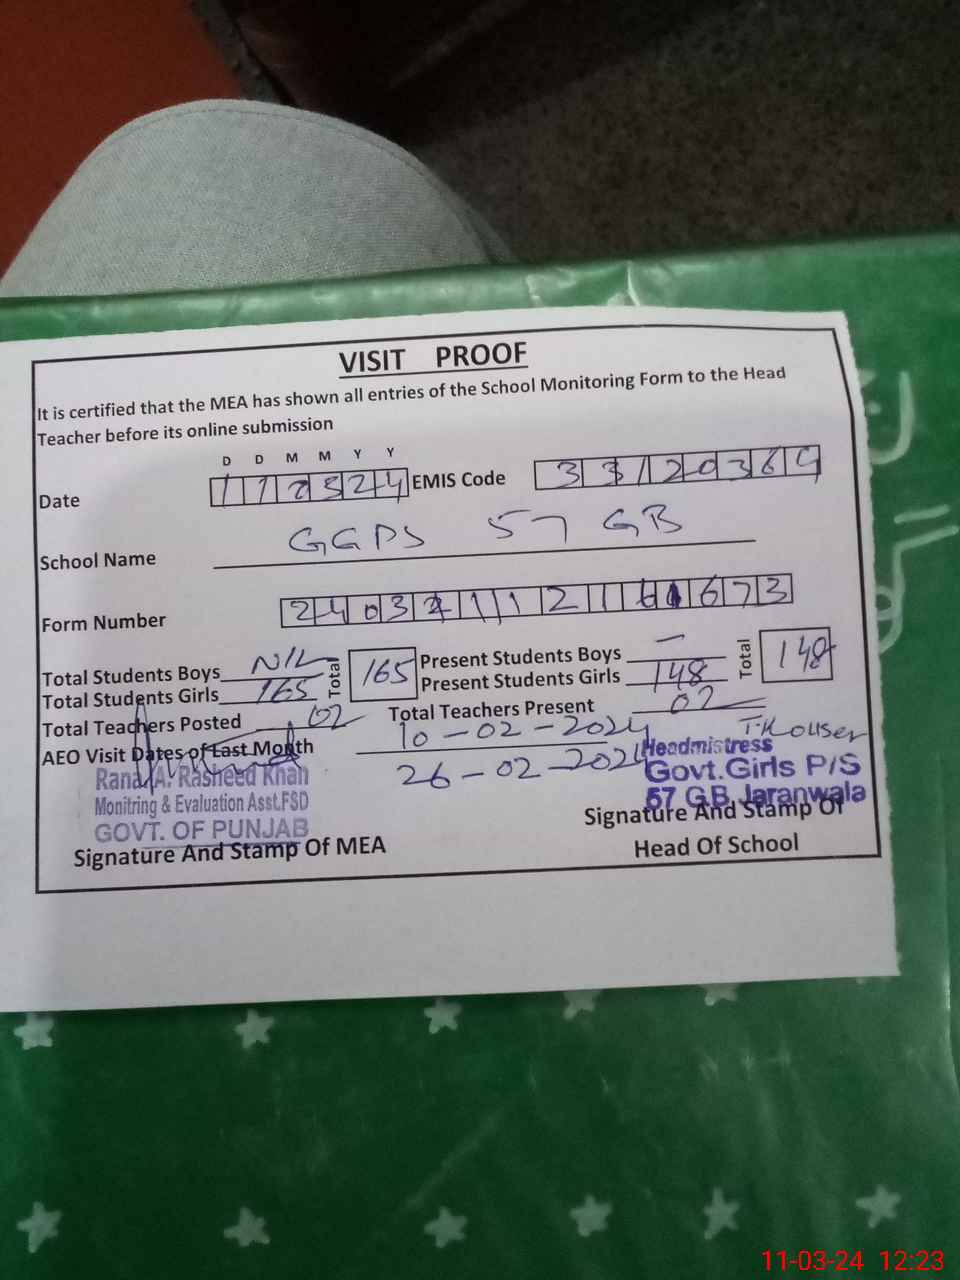 VISIT PROOF
It is certified that the MEA has shown all entries of the School Monitoring Form to the Head
Teacher before its online submission
D D M M Y Y
Date 110324 EMIS Code 33120364
School Name GGPS 57 GB
Form Number
Total Students Boys NIL Total 165 Present Students Boys — Total 148
Total Students Girls 165 Present Students Girls 148
Total Teachers Posted 02 Total Teachers Present 02
AEO Visit Dates of Last Month 10-02-2024
26-02-2024
T.Kouser
Rana A. Rasheed Khan
Monitring & Evaluation Asst.FSD
GOVT. OF PUNJAB
Signature And Stamp Of MEA
Headmistress
Govt.Girls P/S
57 G.B. Jaranwala
Signature And Stamp Of
Head Of School
11-03-24 12:23